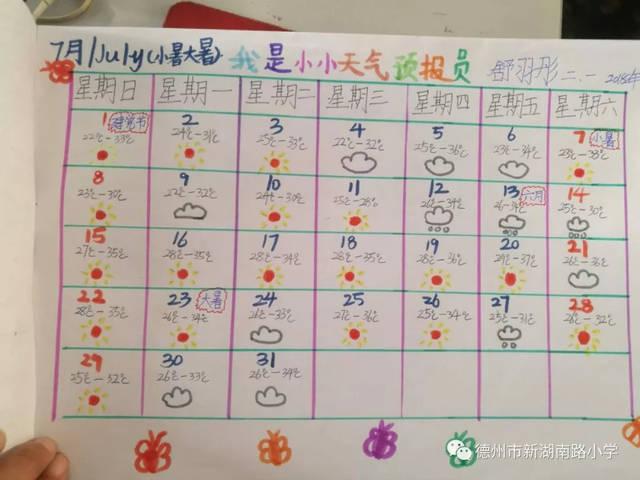 7月/July(小暑大暑) 我是小小天气预报员 舒羽彤 二.一 2018年
星期日 星期一 星期二 星期三 星期四 星期五 星期六
1 建党节 2 3 4 5 6 7 小暑
22℃-33℃ 24℃-31℃ 25℃-33℃ 22℃-32℃ 25℃-36℃ 23℃-34℃ 28℃-38℃
8 9 10 11 12 13 六月 14
23℃-30℃ 22℃-32℃ 24℃-30℃ 25℃-28℃ 26℃-34℃ 26-34℃ 25℃-30℃
15 16 17 18 19 20 21
27℃-35℃ 28℃-35℃ 28℃-34℃ 28℃-35℃ 28℃-36℃ 29℃-37℃ 26℃-36℃
22 23 大暑 24 25 26 27 28
28℃-35℃ 26℃-34℃ 26℃-33℃ 27℃-36℃ 25℃-34℃ 25℃-31℃ 26℃-32℃
29 30 31
25℃-32℃ 26℃-33℃ 26℃-34℃
德州市新湖南路小学